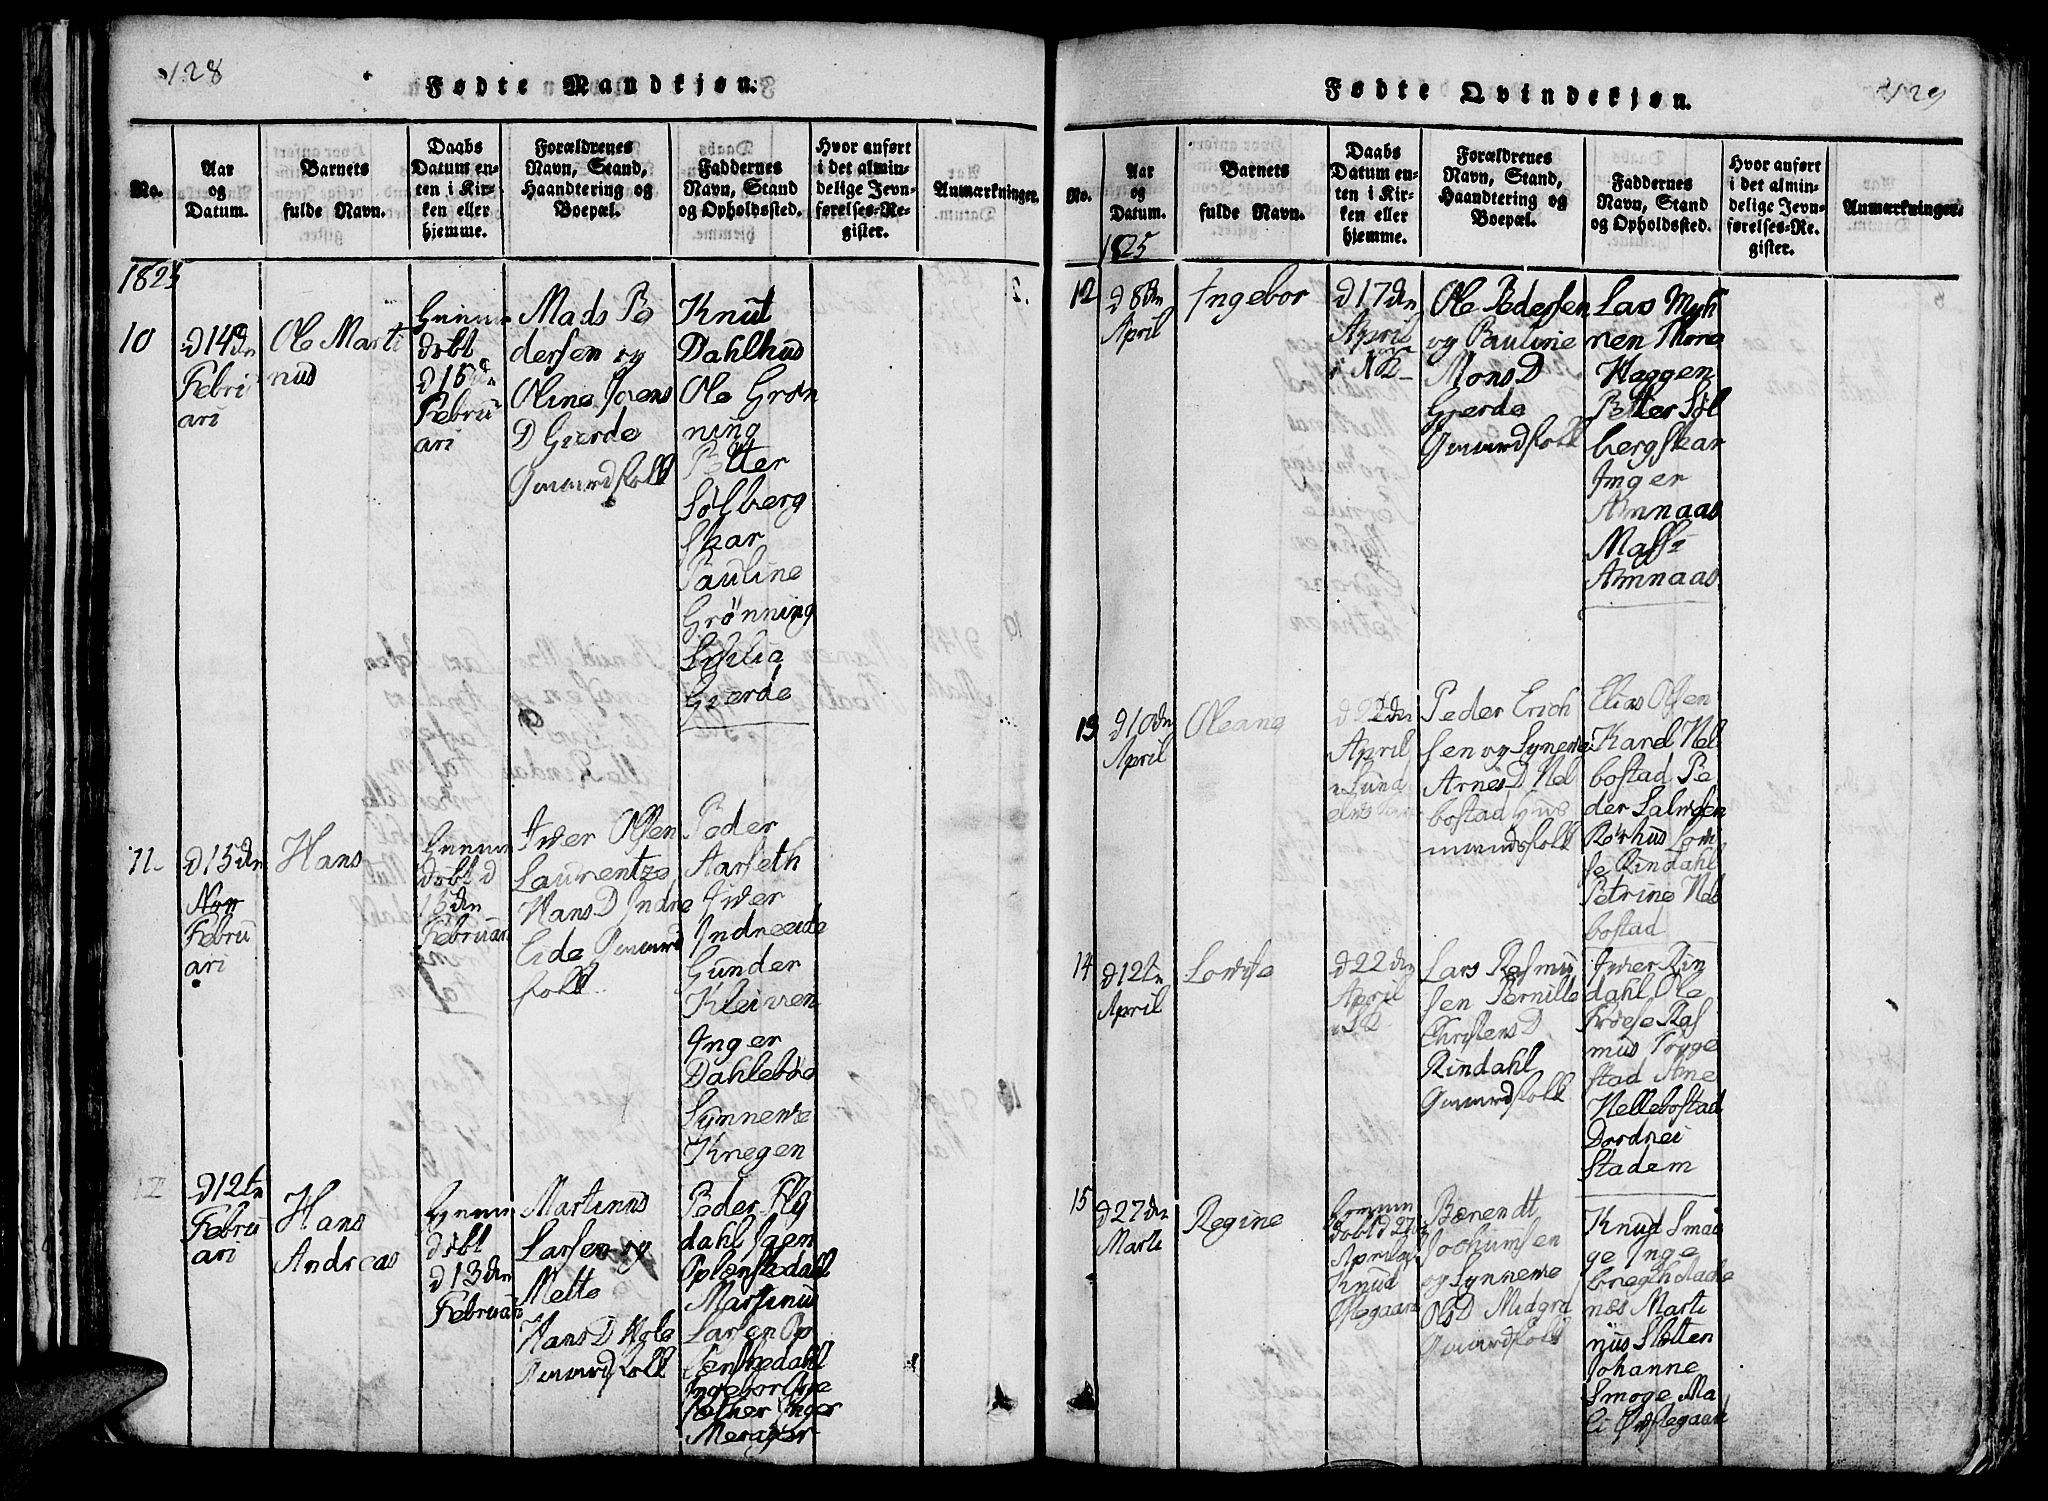 128
Fødte Mandkjøn.
No.
Aar
og
Datum.
Barnets
fulde Navn.
Daabs
Datum en-
ten i Kir-
ken eller
hjemme.
Forældrenes
Navn, Stand,
Haandtering og
Boepæl.
Faddernes
Navn, Stand
og Opholdssted.
Hvor anført
i det almin-
delige Jevn-
førelses-Re-
gister.
Anmærkninger.
1825
10
d 14 dn
Febri
ari
Ole Marti
nus
dobt
d 15 dn
Febru
ari
Mads Pe
dersen og
Oline Joens
D Gierde
Gaardfolk
Knut
Dahlhus
Ole Grøn
ning
Petter
Solberg
Skar
Pauline
Grønning
Gierde
11
d 15 dn
Febru
ari
Hans
dobt d
15 dn
Februari
Iver Olsen
Laurentze
Hans D Indre
Eide Gaard
folk
Peder
Aarseth
Iver
Indreeide
Gunder
Kleiven
Inger
Dahlebøe
Synneve
Knegen
12
d 12tn
Febru
ari
Hans
Andreas
dobt
d 13 dn
Februari
Martinus
Larsen og
Mette
Hans D Hole
Gaardfolk
Peder Fly
dahl
Martinus
Larsen Op
Inger
129
Fødte Qvindekjøn.
No.
Aar
og
Datum.
Barnets
fulde Navn.
Daabs
Datum en-
ten i Kir-
ken eller
hjemme.
Forældrenes
Navn, Stand,
Haandtering og
Boepæl.
Faddernes
Navn, Stand
og Opholdssted.
Hvor anført
i det almin-
delige Jevn-
førelses-Re-
gister.
Anmærkninger.
1825
12
d 8 dn
April
Ingebor
d 17 dn
April
Ole Pedersen
og Pauline
Mons D
Gjerde
Gaardfolk
Lars Myh
ren Thore
Haggen
Petter Sol
bergskar
Inger
Amnaas
Amnaas
13
d 10 dn
April
Oleana
d 22 dn
April
Peder Erich
sen og Syneve
Arnes D Nel
bostad Hus
mandsfolk
Elias Olsen
Karel Nel
bostad Pe
der Salvesen
Rørhus Lovi
se Rindahl
Petrine Nel
bostad
14
d 12 tn
April
Lovise
d 22 dn
April
Lars Rasmu
sen Pernille
Christens D
Rindahl
Gaardfolk
Iver Rin
dahl Ole
Frøese Ras
mus Tryge
stad Ane
Hellebostad
Stadem
15
d 27 dn
Marti
Regine
dobt d 27
April
Knud
Bærendt
Jochumsen
og Synneve
Ols D Midgra
Gaardfolk
Knud Smaa
ge Inge
næs Marti
nus Slotten
Johanne
Smoge Ma